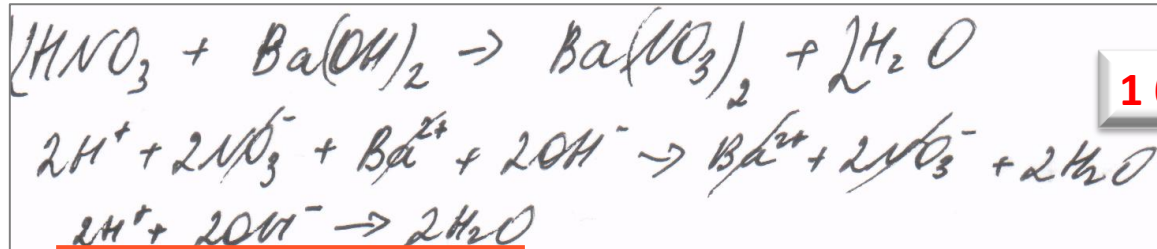 2HNO₃ + Ba(OH)₂ → Ba(NO₃)₂ + 2H₂O
2H⁺ + 2NO₃⁻ + Ba²⁺ + 2OH⁻ → Ba²⁺ + 2NO₃⁻ + 2H₂O
2H⁺ + 2OH⁻ → 2H₂O